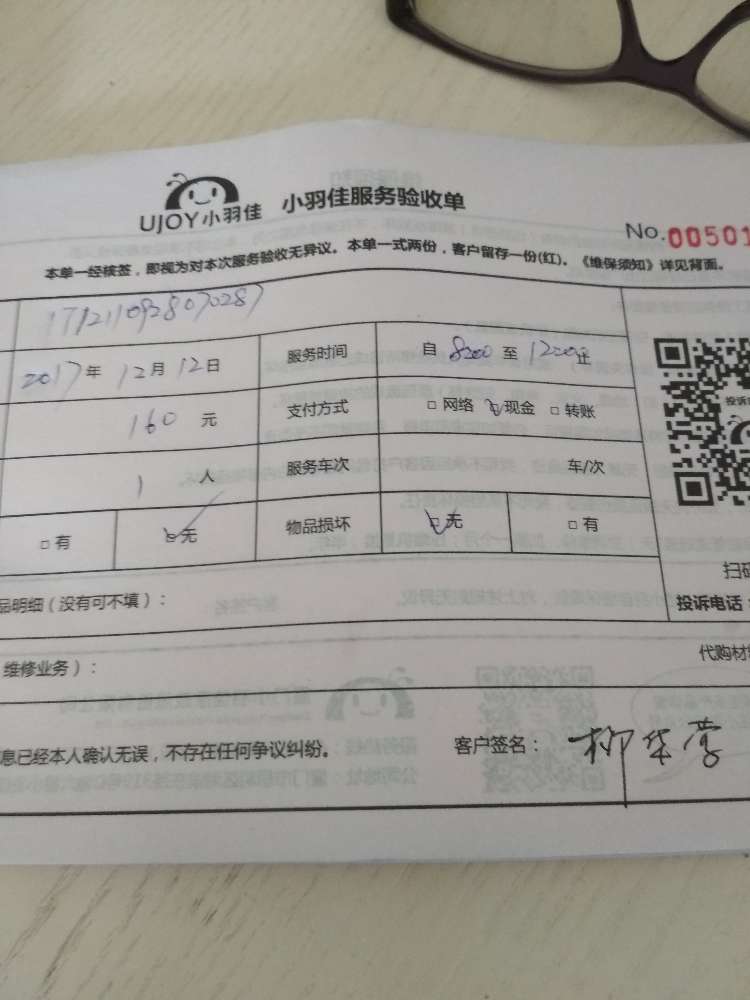 UJOY小羽佳 小羽佳服务验收单
No.00501
本单一经核签，即视为对本次服务验收无异议。本单一式两份，客户留存一份(红)。《维保须知》详见背面。
1712110928070287
2017年 12月 12日 服务时间 自 8200 至 1200止
160 元 支付方式 □ 网络 □现金 □ 转账
投诉
1 人 服务车次 车/次
□ 有 □无 物品损坏 □无 □ 有
扫码
品明细（没有可不填）： 投诉电话
维修业务）： 代购材
息已经本人确认无误，不存在任何争议纠纷。 客户签名：柳华营